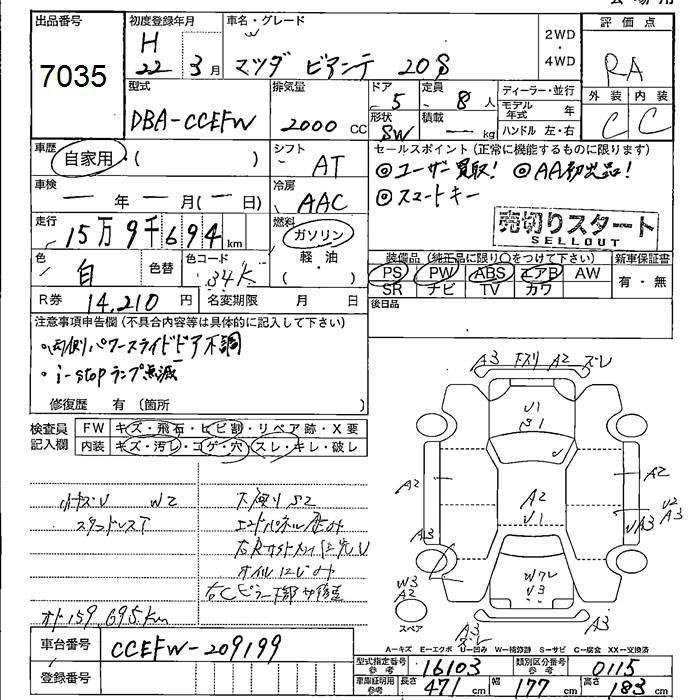 出品番号
7035
初度登録年月
H
22 年 3 月
車名・グレード
マツダ ビアンテ 20S
2WD
・
4WD
評価点
RA
外装 内装
C C
型式
DBA-CCEFW
排気量
2000 CC
ドア
5
形状
SW
定員
8 人
積載
— kg
ディーラー・並行
モデル年式 年
ハンドル 左・右
車歴
自家用・( )
シフト
AT
車検
— 年 — 月(— 日)
冷房
AAC
走行
15万9千694 km
燃料
ガソリン
軽・油
( )
色
白
色替
色コード
34K
R券 14,210 円
名変期限 月 日
セールスポイント (正常に機能するものに限ります)
◎ユーザー買取! ◎AA初出品!
◎スマートキー
売切りスタート
SELLOUT
装備品 (純正品に限り○をつけて下さい)
PS PW ABS エアB AW
SR ナビ TV カワ
新車保証書
有・無
後日品
注意事項申告欄 (不具合内容等は具体的に記入して下さい)
・両側パワースライドドア不調
・i-stopランプ点滅
修復歴 有 (箇所 )
検査員
記入欄
FW キズ・飛石・ヒビ割・リペア跡・X要
内装 キズ・汚レ・コゲ・穴・スレ・キレ・破レ
小キズU W2
スタッドレスT
下廻りS2
オド159,695km
A3 下スリ A2 ズレ
U1
A2
U1
A2
A2
A3
U2
A3
A3
W3
A2
スペア
U3
A3
A3
A-キズ E-エクボ U-凹み W-補修跡 S-サビ C-腐食 XX-交換済
車台番号
CCEFW-209199
登録番号
型式指定番号
参考
16103
類別区分番号
参考
0115
車庫証明用
参考
長さ 471 cm
幅 177 cm
高さ 183 cm